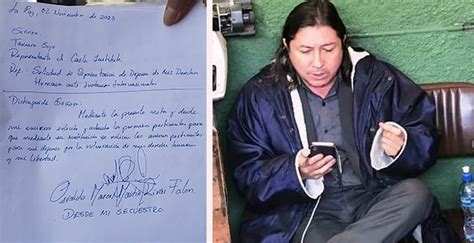 La Paz, 02 Noviembre de 2023
Señora
Tamara Sujo
Representante el Casla Institute
Ref. Solicitud de Representación de Defensa de mis Derechos
Humanos ante Instancias Internacionales
Distinguida Señora:
Mediante la presente nota y desde
mi encierro solicito y
para que
mediante su institución se
pertinentes
para mi defensa por la vulneración de mis derechos humanos
y mi libertad.
Marco
DESDE MI SECUESTRO